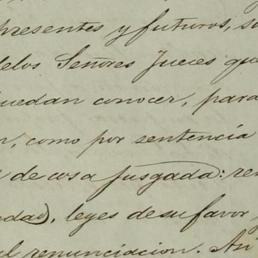 presentes y futuros, so
delos Señores Jueces que
puedan conocer, para
n, como por sentencia
de cosa jusgada: ren
edad), leyes desu favor y
al renunciacion. Asi